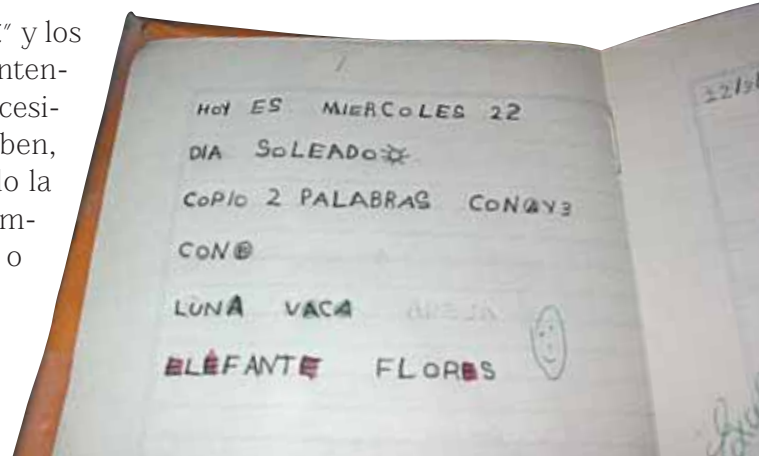 " y los
nten-
cesi-
ben,
o la
m-
o
HOY ES MIERCOLES 22
DIA SOLEADO
COPIO 2 PALABRAS CON A Y 3
CON E
LUNA VACA
ELEFANTE FLORES